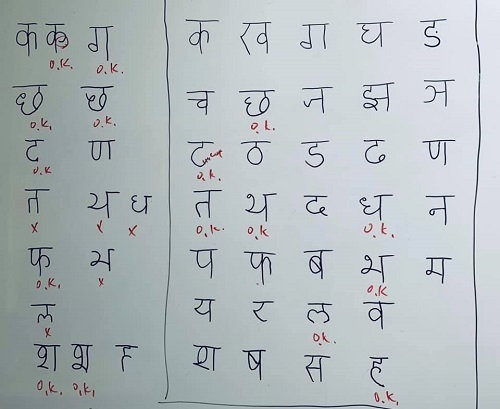 क क ग
o.k. o.k.
छ छ
o.k. o.k.
ट ण
o.k
त थ ध
x x x
फ भ
o.k. x
ल
x
श श ह
o.k. o.k.
क ख ग घ ङ
च छ ज झ ञ
o.k.
ट ठ ड ढ ण
o.k.
त थ द ध न
o.k. o.k o.k.
प फ ब भ म
o.k
य र ल व
o.k.
श ष स ह
o.k.